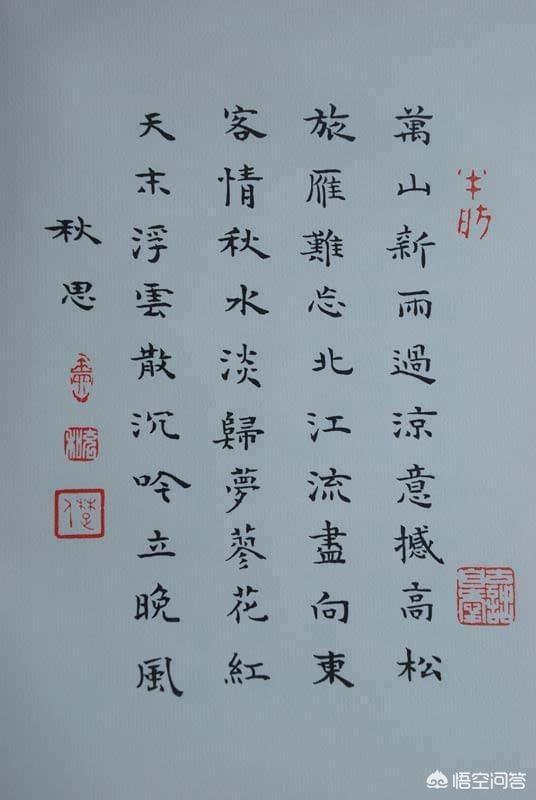 萬山新雨過涼意撼高松
旅雁難忘北江流盡向東
客情秋水淡歸夢蓼花紅
天末浮雲散沉吟立晚風
秋思
悟空问答